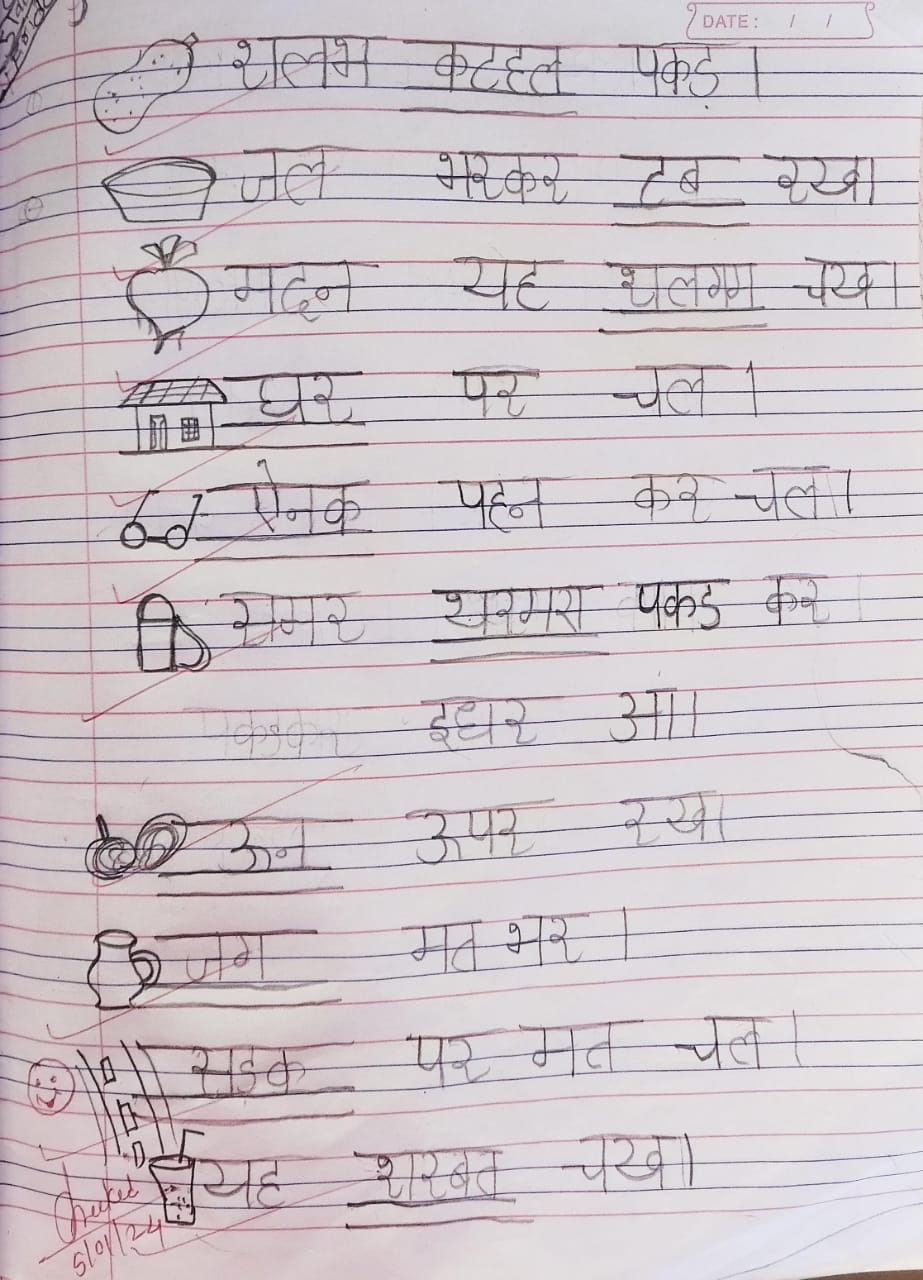 DATE: / /
शलभ कटहल पकड़ ।
जल भरकर टब रख।
मदन यह शलगम चख।
घर पर चल ।
ऐनक पहन कर चल।
समर थरमस पकड कर
इधर आ।
ऊन ऊपर रख।
जग मत भर ।
सडक पर मत चल ।
यह शरबत चख।
Checked
5/01/24